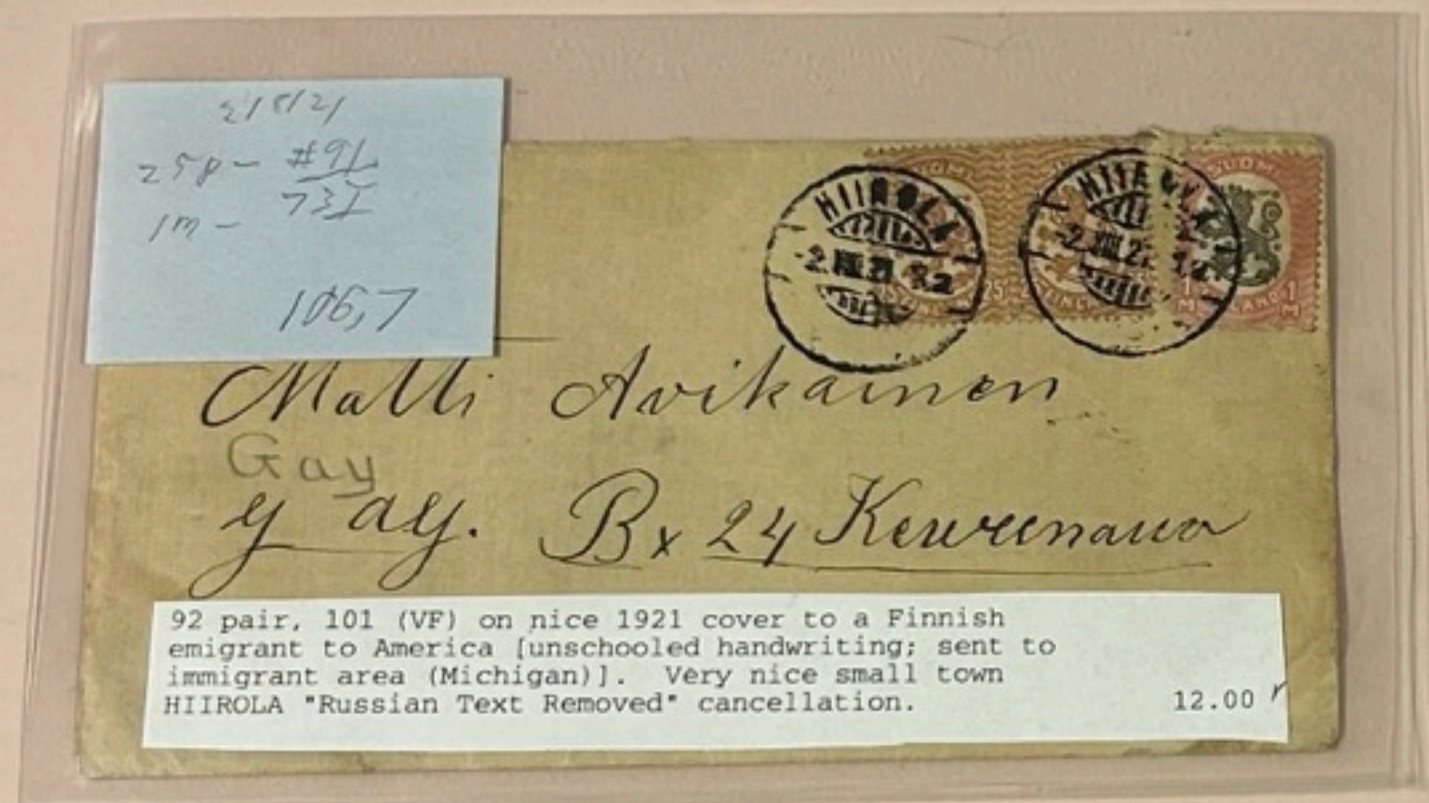 2/8/21
25p - #91
1m - 73I
106,7
SUOMI
SUOMI
HIIROLA
-2.VIII.21
HIIROLA
-2.VIII.21
25
1 M FINLAND 1 M
Matti Avikainen
Gay
Gay. Bx 24 Kewrenawo
92 pair, 101 (VF) on nice 1921 cover to a Finnish
emigrant to America [unschooled handwriting; sent to
immigrant area (Michigan)]. Very nice small town
HIIROLA "Russian Text Removed" cancellation. 12.00